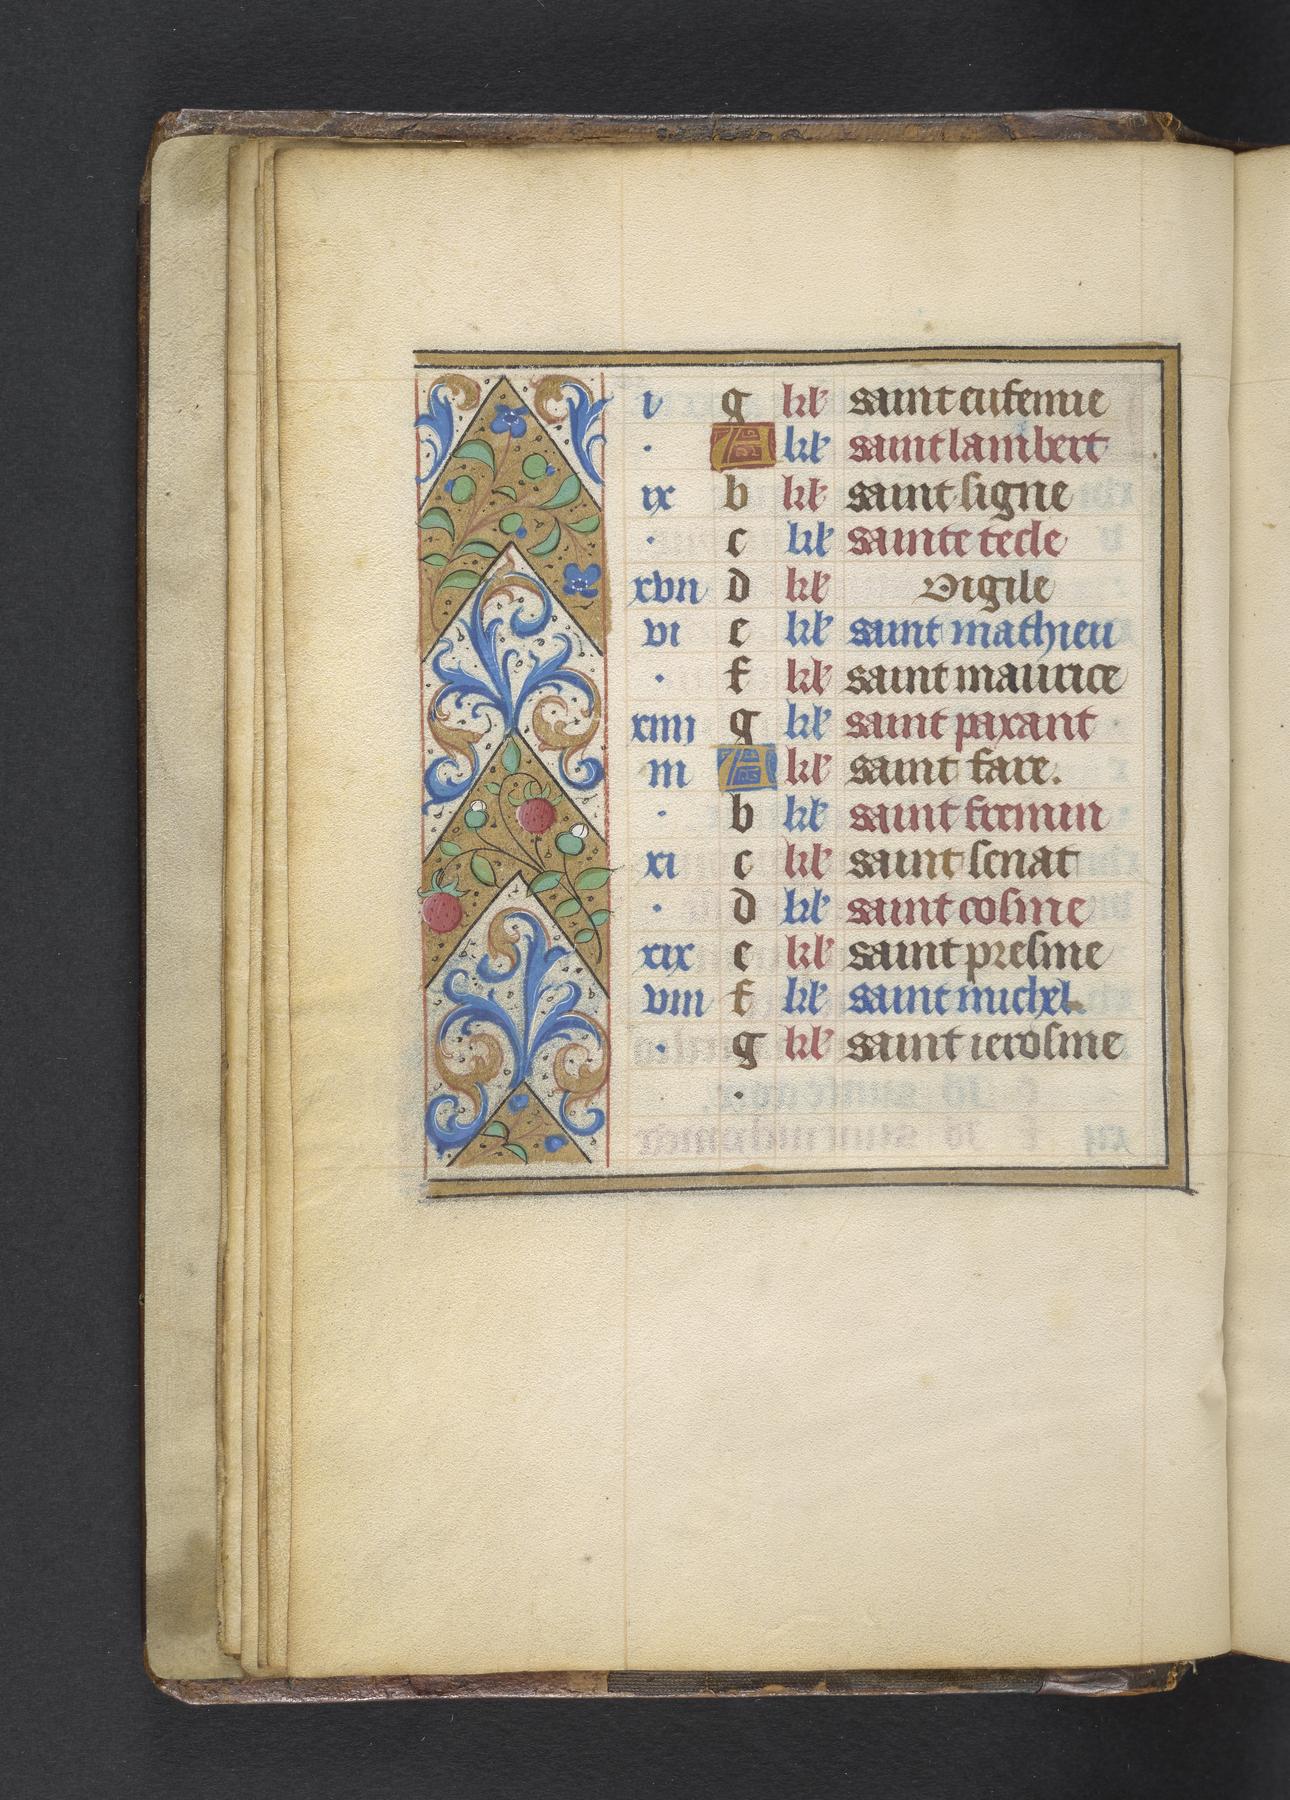 v g kl saint eufemie
. A kl saint lambert
ix b kl saint signe
. c kl sainte tecle
xvii d kl Vigile
vi e kl saint mathieu
. f kl saint maurice
xiiii g kl saint paxant
iii A kl saint fare.
. b kl saint fremin
xi c kl saint senat
. d kl saint cosme
xix e kl saint presme
viii f kl saint michel.
. g kl saint ierosme